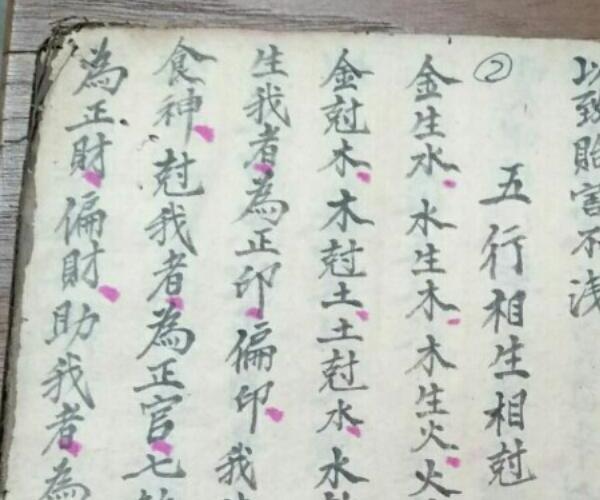 以致貽害不浅
② 五行相生相尅
金生水水生木木生火火
金尅木木尅土土尅水水
生我者為正印偏印我
食神尅我者為正官七
為正財偏財助我者為